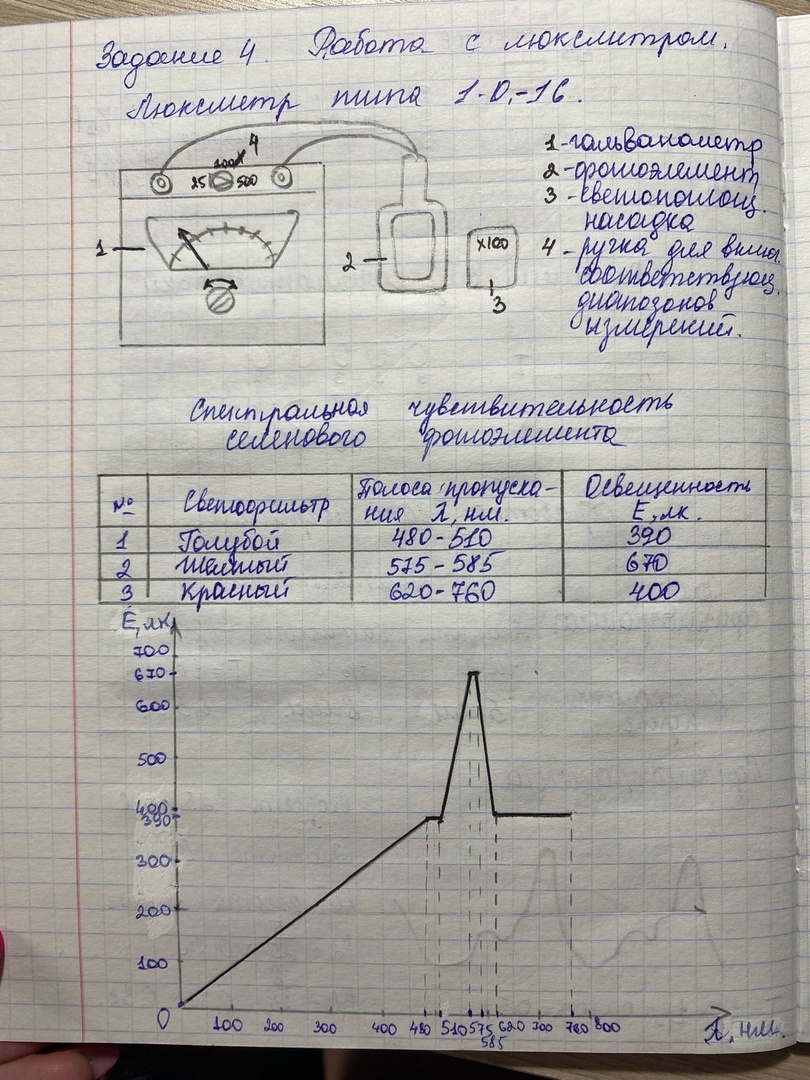 Задание 4. Работа с люксметром.
Люксметр типа 1-0,-16.
4
100x
25 500
1
2
x100
3
1-гальванометр
2-фотоэлемент
3-светопоглощ.
насадка
4-ручка для включ.
соответствующ.
диапозонов
измерений.
Спектральная чувствительность
селенового фотоэлемента
№ Светофильтр Полоса пропуска- Освещенность
ния λ, нм. E, лк.
1 Голубой 480-510 390
2 Жёлтый 575-585 670
3 Красный 620-760 400
E, лк
700
670
600
500
400
390
300
200
100
0 100 200 300 400 480 510 575 585 620 700 760 800 λ, нм.